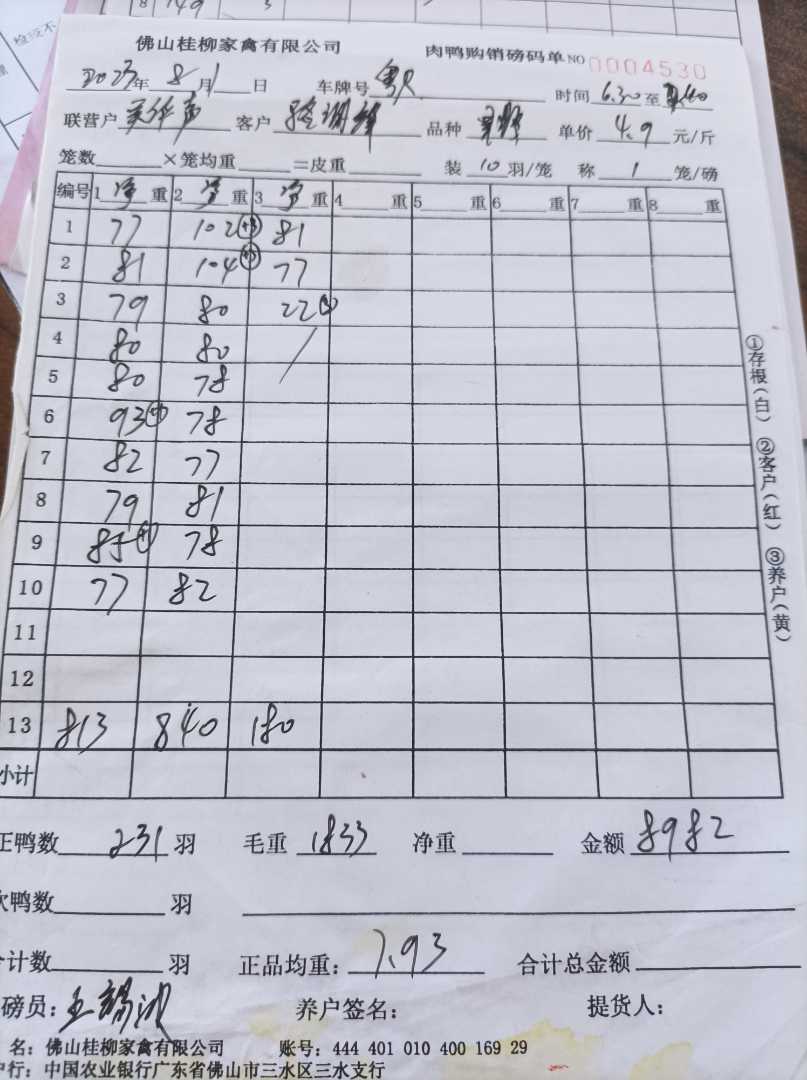 8 149 3
佛山桂柳家禽有限公司 肉鸭购销磅码单 NO 0004530
2023年 8月1日 车牌号 粤 时间 6.30至
联营户 客户 品种 单价 4.9 元/斤
笼数 ×笼均重 =皮重 装 10 羽/笼 称 1 笼/磅
编号 1 净 重 2 净 重 3 净 重 4 重 5 重 6 重 7 重 8 重
1 77 102 81
2 81 104 77
3 79 80 22
4 80 80
5 80 78
6 93 78
7 82 77
8 79 81
9 85 78
10 77 82
11
12
13 813 840 180
小计
①存根(白) ②客户(红) ③养户(黄)
正鸭数 231 羽 毛重 1833 净重 金额 8982
鸭数 羽
计数 羽 正品均重: 7.93 合计总金额
磅员: 王 养户签名: 提货人:
名: 佛山桂柳家禽有限公司 账号: 444 401 010 400 169 29
户行: 中国农业银行广东省佛山市三水区三水支行